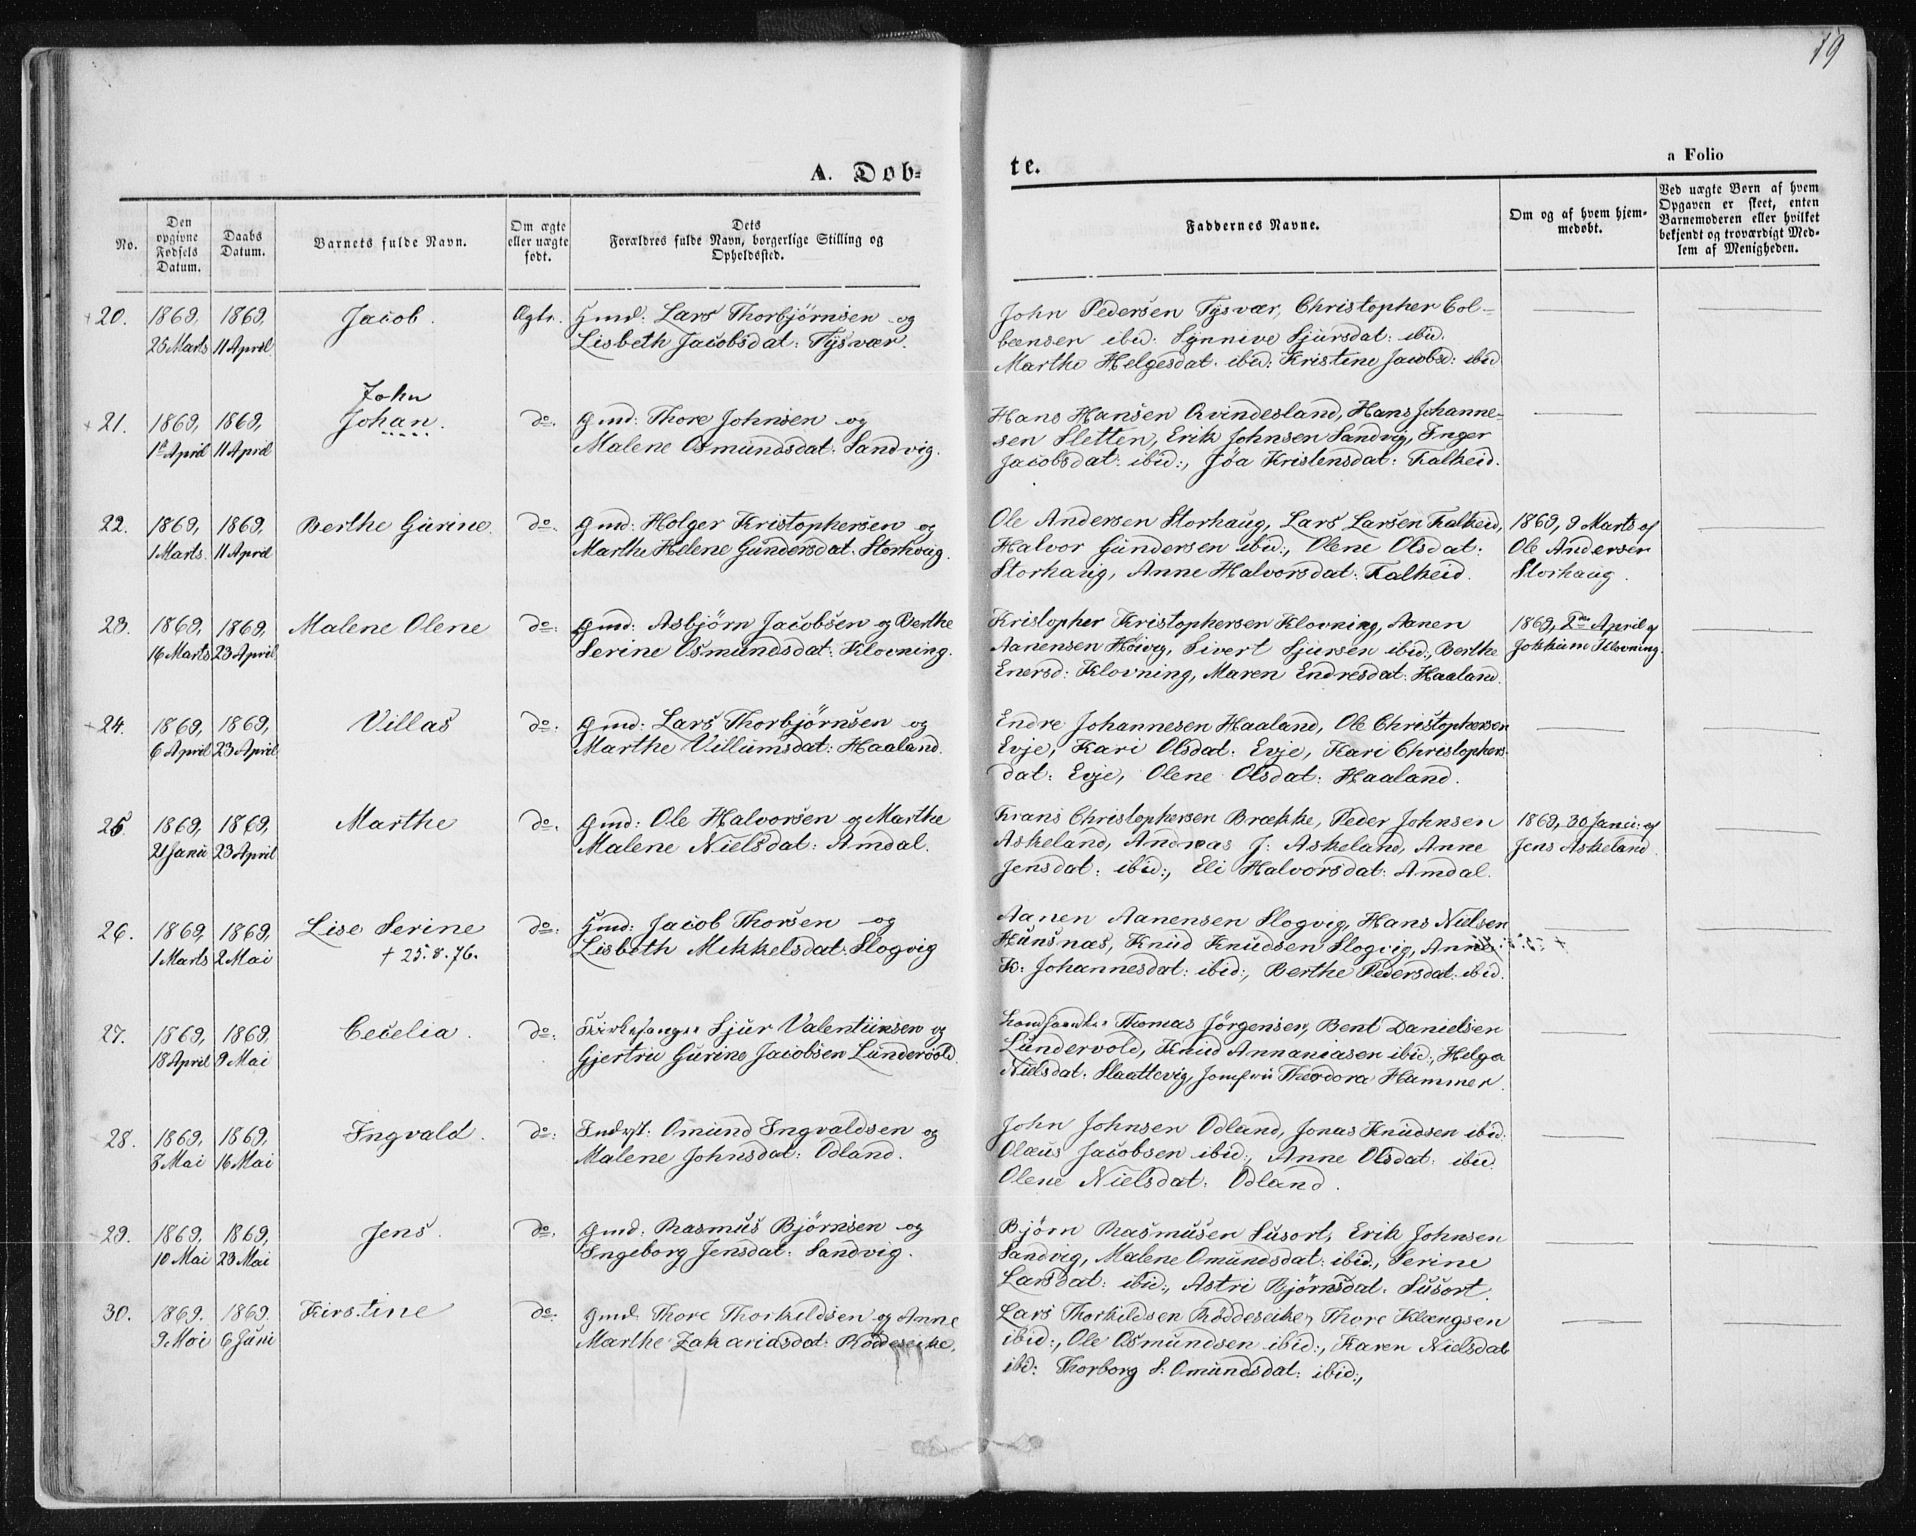 19
A. Dob-
te.
a Folio
No.
Den opgivne Fødsels Datum.
Daabs Datum.
Barnets fulde Navn.
Om ægte eller uægte født.
Dets Forældres fulde Navn, borgerlige Stilling og Opholdssted.
Faddernes Navne.
Om og af hvem hjemmedøbt.
Ved uægte Børn af hvem Opgaven er skeet, enten Barnemoderen eller hvilket bekjendt og troværdigt Medlem af Menigheden.
20. 1869, 1869, Jacob. Ægte. Gmd: Lars Thorbjørnsen og
25 Marts 11 April Lisbeth Jacobsdat: Tysvær.
John Pedersen Tysvær, Christopher Col-
bensen ibid: Synnive Sjursdat: ibid.
Marthe Helgesdat. ibid: Kristine Jacobsd: ibid
John
21. 1869, 1869, Johan. do. Gmd: Thore Johnsen og
1st April 11 April Malene Osmundsdat: Sandvig.
Hans Hansen Qvindesland, Hans Johanne-
sen Sletten, Erik Johnsen Sandvig, Inger
Jacobsdat: ibid:, Jøa Kristensdat: Falkeid.
22. 1869, 1869, Berthe Gurine. do. Gmd: Holger Kristophersen og
1 Marts. 11 April Marthe Helene Gundersdat: Storhvig.
Ole Andersen Storhaug, Lars Larsen Falkeid, 1869, 9 Marts af
Halvor Gundersen ibid:, Olene Olsdat: Ole Andersen
Storhaug, Anne Halvorsdat: Falkeid. Storhaug.
23. 1869, 1869, Malene Olene do: Gmd: Asbjørn Jacobsen og Berthe
16 Marts 23 April Serine Osmundsdat: Klovning.
Kristopher Kristophersen Klovning, Aanen 1869, 2den April af
Aanensen Höivig, Sivert Sjursen ibid:, Berthe Jokkum Klovning.
Enersd: Klovning, Maren Endresdat: Haaland.
24. 1869, 1869, Villas do: Gmd: Lars Thorbjørnsen og
6 April 23 April Marthe Villumsdat: Haaland.
Endre Johannesen Haaland, Ole Christophersen
Evje, Kari Olsdat: Evje, Kari Christophers-
dat: Evje, Olene Olsdat: Haaland.
25. 1869, 1869, Marthe do. Gmd: Ole Halvorsen og Marthe
21 Janu 23 April Malene Nielsdat: Amdal.
Frans Christophersen Brække, Peder Johnsen 1869, 30 Janu: af
Askeland, Andreas J: Askeland, Anne Jens Askeland.
Jensdat: ibid:, Eli Halvorsdat: Amdal.
26. 1869, 1869, Lise Serine do: Gmd: Jacob Thorsen og
1 Marts 2 Mai † 25.8.76. Lisbeth Mikkelsdat: Slogvig
Aanen Aanensen Slogvig, Hans Nielsen
Hunsnæs, Knud Knudsen Slogvig, Anne
K: Johannesdat: ibid:, Berthe Pedersdat: ibid.
27. 1869, 1869, Cecelia. do: Kirkesanger Sjur Valentinsen og
18 April 9 Mai Gjertru Gurine Jacobsen Lundervold.
Thomas Jörgensen, Bent Danielsen
Lundervold, Knud Annaniasen ibid:, Helga
Nielsdat: Slaattevig, Jomfru Theodora Hammer.
28. 1869, 1869, Ingvald. do: Indst: Omund Ingvaldsen og
8 Mai 16 Mai Malene Johnsdat: Odland.
John Johnsen Odland, Jonas Knudsen ibid:
Olaus Jacobsen ibid:, Anne Olsdat: ibid.
Olene Nielsdat: Odland.
29. 1869. 1869. Jens. do. Gmd: Rasmus Bjørnsen og
10 Mai 23 Mai Ingeborg Jensdat: Sandvig.
Bjørn Rasmusen Susort, Erik Johnsen
Sandvig, Malene Omundsdat: ibid:, Serine
Larsdat: ibid:, Astri Bjørnsdat: Susort.
30. 1869. 1869. Kirstine do: Gmd. Thore Thorkildsen og Anne
9 Mai 6 Juni Marthe Zakariasdat: Röddeseike.
Lars Thorkildsen Röddeseike, Thore Klængsen
ibid:, Ole Osmundsen ibid:, Karen Nielsdat
ibd: Thorborg S: Omundsdat: ibid:,